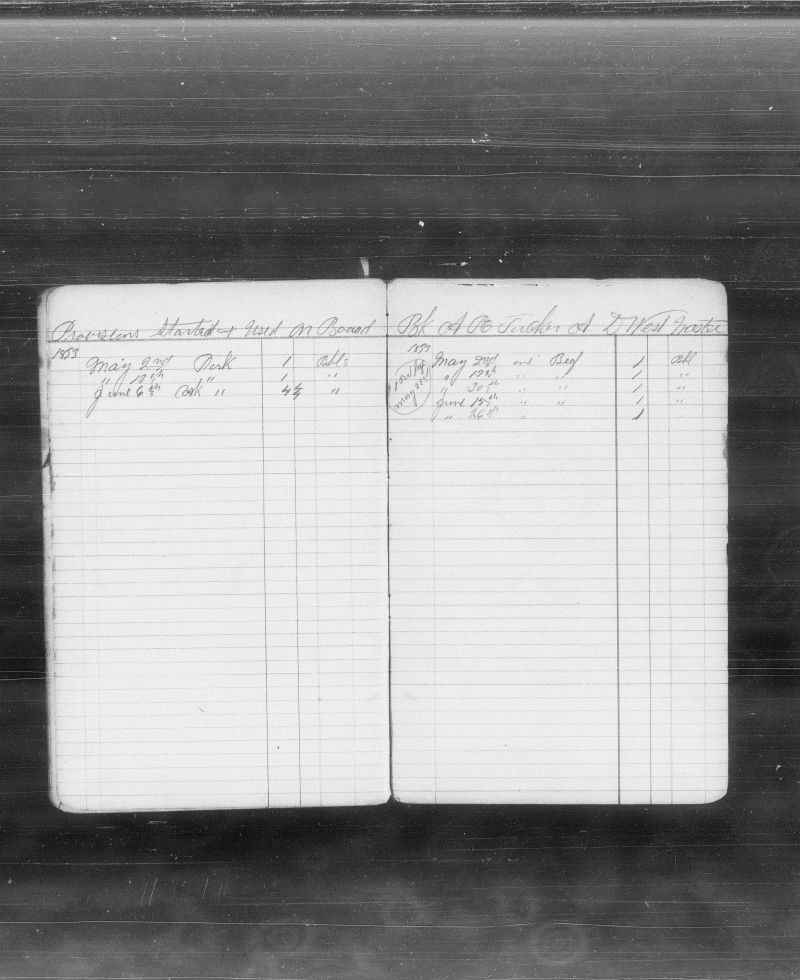 Provisions Started & Used on Board
1853
May 2nd Pork 1 Bbls
" 18th " 1 "
June 6th " "
Bk A R Tucker A D West Master
1853
May 2nd one Beef 1 Bbl
" 18th " " 1 "
" 30th " " 1 "
June 15th " " 1 "
" 26th " 1
May